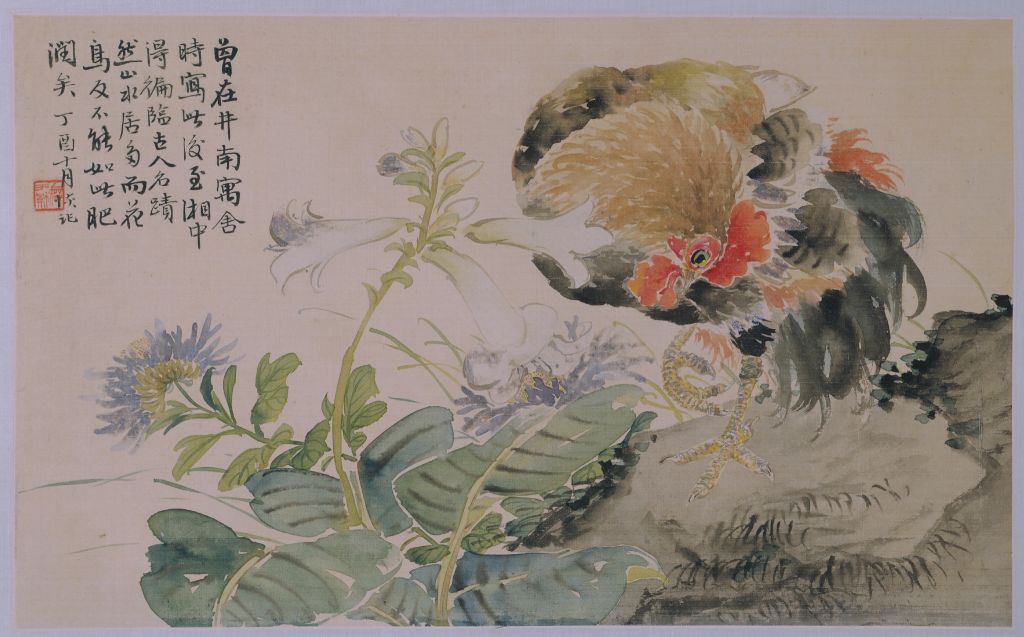 曾在井南寓舍
時寫此後至湘中
得徧臨古人名蹟
然山水居多而花
鳥反不能如此肥
潤矣 丁酉十月